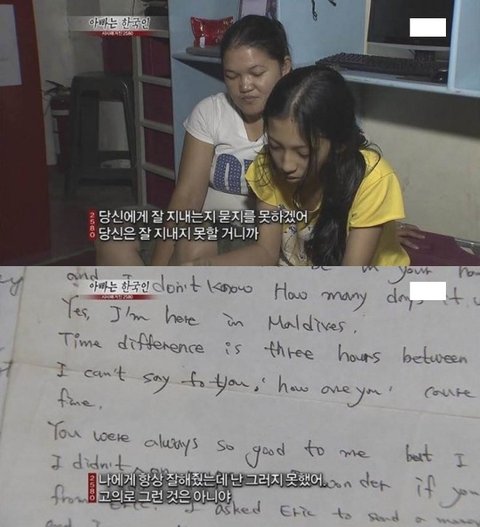 아빠는 한국인
시사매거진 2580
2580
당신에게 잘 지내는지 묻지를 못하겠어
당신은 잘 지내지 못할 거니까
and I don't know How many days it
아빠는 한국인
시사매거진 2580
Yes, I'm here in Maldives.
Time difference is three hours between
I can't say to you, 'how are you' cause
fine.
You were always so good to me but I
I didn't wonder if you
2580
나에게 항상 잘해줬는데 난 그러지 못했어
고의로 그런 것은 아니야
from Eric. I asked Eric to send a